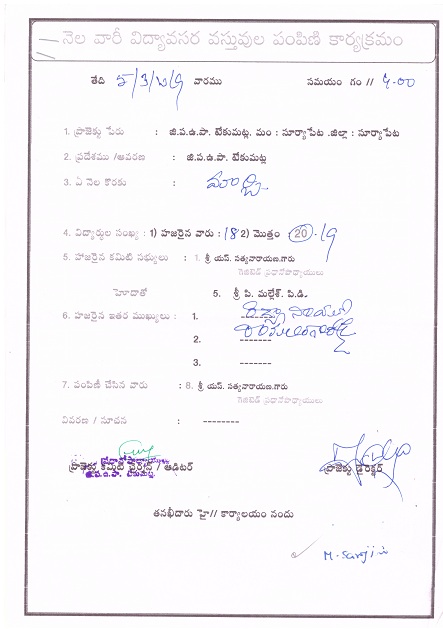 నెల వారీ విద్యావసర వస్తువుల పంపిణి కార్యక్రమం
తేది 5/3/2019 వారము సమయం గం // 4-00
1. ప్రాజెక్టు పేరు : జి.ప.ఉ.పా. టేకుమట్ల, మం : సూర్యాపేట .జిల్లా : సూర్యాపేట
2. ప్రదేశము /ఆవరణ : జి.ప.ఉ.పా. టేకుమట్ల
3. ఏ నెల కొరకు : మార్చి
4. విద్యార్థుల సంఖ్య : 1) హజరైన వారు : 18 2) మొత్తం : 20 19
5. హాజరైన కమిటి సభ్యులు : 1. శ్రీ యస్. సత్యనారాయణ.గారు
గెజిటెడ్ ప్రధానోపాధ్యాయులు
హెదాతో 5. శ్రీ పి. మల్లేశ్. పి.డి.
6. హజరైన ఇతర ముఖ్యులు : 1.
2. -------
3. -------
7. పంపిణీ చేసిన వారు : 8. శ్రీ యస్. సత్యనారాయణ.గారు
గెజిటెడ్ ప్రధానోపాధ్యాయులు
వివరణ / సూచన : --------
ప్రాజెక్టు కమిటి చైర్మైన్ / ఆడిటర్ ప్రాజెక్టు డైరెక్టర్
జి.ప.ఉ.పా. టేకుమట్ల
తనఖీదారు హై// కార్యాలయం నందు